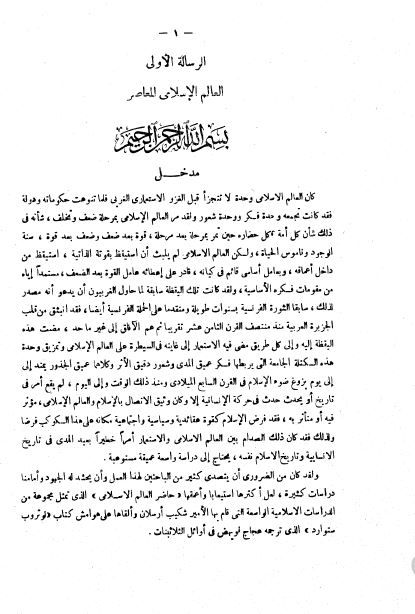 — ١ —
الرسالة الأولى
العالم الإسلامى المعاصر
بسم الله الرحمن الرحيم
مدخل
كان العالم الاسلامى وحدة لا تتجزأ قبل الغزو الاستعمارى الغربى فلما تنوعت حكوماته ودوله
فقد كانت تجمعه وحدة فكر ووحدة شعور ولقد مر العالم الإسلامى بمرحلة ضعف وتخلف ، شأنه فى
ذلك شأن كل أمة وككل حضاره حين تمر بمرحلة بعد مرحلة ، قوة بعد ضعف وضعف بعد قوة ، سنة
الوجود وناموس الحياة ، ولكن العالم الاسلامى لم يلبث أن استيقظ بقوته الذاتية ، استيقظ من
داخل أعماقه ، وبعامل أساسى قائم فى كيانه ، قادر على إعطائه عامل القوة بعد الضعف ، مستمداً إياه
من مقومات فكره الأساسية ، ولقد كانت تلك اليقظة سابقة لما حاول الغربيون أن يدعوه مصدر
لذلك ، سابقا الثورة الفرنسية بسنوات طويلة ومتقدما على الحملة الفرنسية أيضا ، فقد انبثق من قلب
الجزيرة العربية منذ منتصف القرن الثامن عشر تقريبا ثم هم الآفاق إلى غير ما حد ، مضت هذه
اليقظة إلى كل طريق مضى فيه الاستعمار إلى غايته فى السيطرة على العالم الإسلامى وتمزيق وحدة
هذه الكتلة الجامعة التى يربطها فكر عميق المدى وشعور دقيق الأثر وكلاهما عميق الجذور يمتد إلى
إلى يوم بزوغ ضوء الإسلام فى القرن السابع الميلادى ومنذ ذلك الوقت وإلى اليوم ، لم يقع أمر فى
تاريخ أو يحدث حدث فى حركة الإنسانية إلا وكان وثيق الاتصال بالإسلام والعالم الإسلامى ، مؤثر
فيه أو متأثر به ، فقد فرض الإسلام كقوة عقائدية وسياسية واجتماعية مكانه على هذا الكوكب فرضا
ولذلك فقد كان ذلك الصدام بين العالم الاسلامى والاستعمار أمراً خطيراً بعيد المدى فى تاريخ
الانسانية وتاريخ الاسلام نفسه ، يحتاج إلى دراسة واسعة عميقة مستوعبة .
ولقد كان من الضرورى أن يتصدى كثير من الباحثين لهذا العمل وأن يحشد له الجهود وأمامنا
دراسات كثيرة ، لعل أكثرها استيعابا وأعمقها « حاضر العالم الاسلامى » الذى تمثل مجموعة من
الدراسات الاسلامية الواسعة التى قام بها الأمير شكيب أرسلان وألقاها على هوامش كتاب « لوثروب
ستوارد » الذى ترجمه عجاج نويهض فى أوائل الثلاثينات .